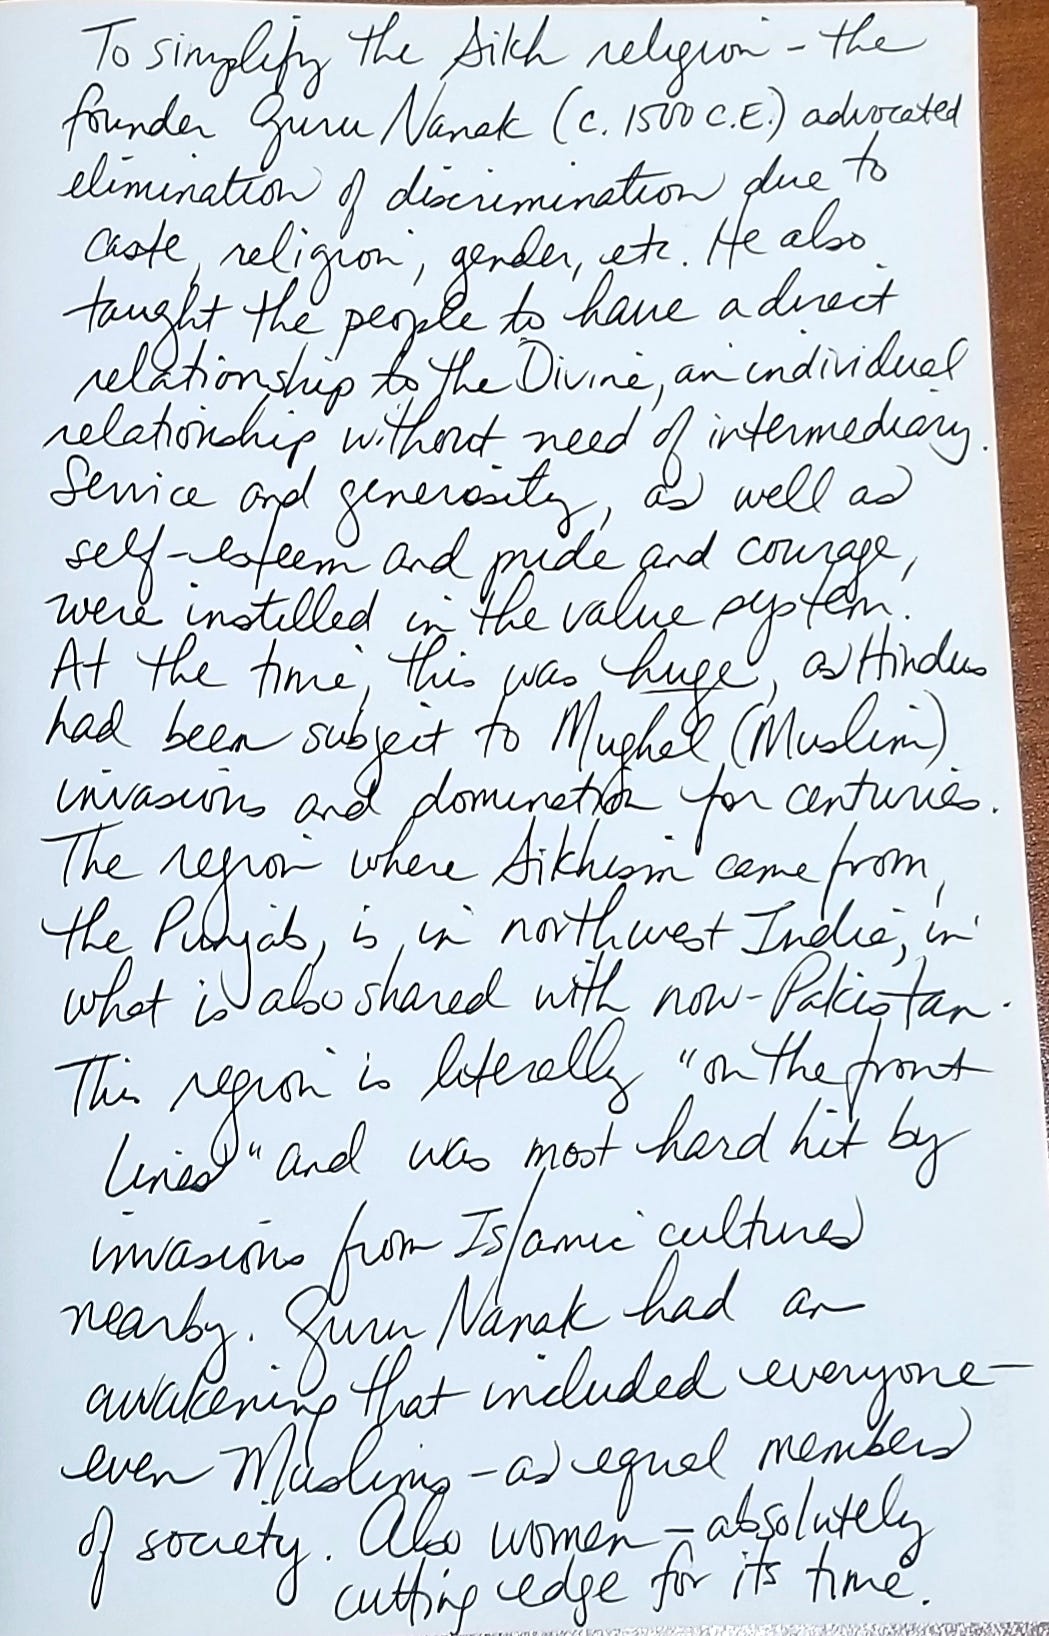 To simplify the Sikh religion - the
founder Guru Nanak (c. 1500 C.E.) advocated
elimination of discrimination due to
caste, religion, gender, etc. He also
taught the people to have a direct
relationship to the Divine, an individual
relationship without need of intermediary.
Service and generosity, as well as
self-esteem and pride and courage,
were instilled in the value system.
At the time, this was huge, as Hindus
had been subject to Mughal (Muslim)
invasions and domination for centuries.
The region where Sikhism came from,
the Punjab, is in northwest India, in
what is also shared with now-Pakistan.
This region is literally "on the front
lines" and was most hard hit by
invasions from Islamic cultures
nearby. Guru Nanak had an
awakening that included everyone—
even Muslims - as equal members
of society. Also women - absolutely
cutting edge for its time.